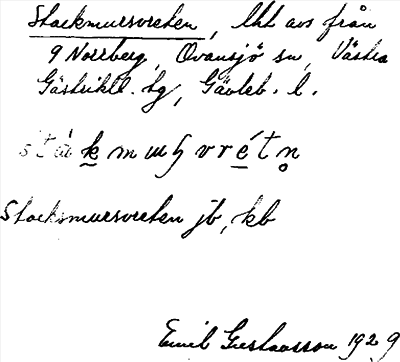 Stackmursvreten, lht avs från
9 Norrberg, Ovansjö sn, Västra
Gästrikl. tg, Gävleb. l.
Stacksmursvreten jb, kb
Emil Gustavsson 1929